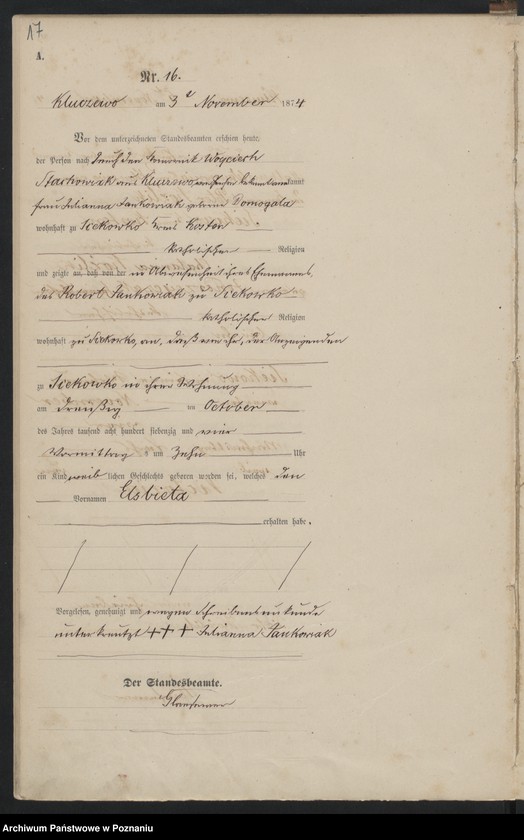 17
A.
Nr. 16.
Kluczewo am 3 November 1874
Vor dem unterzeichneten Standesbeamten erschien heute,
der Person nach durch den Wojciech
Stachowiak aus Kluczewo bekannt
Frau Julianna Jankowiak geborene Domogala
wohnhaft zu Siekowko Kreis Kosten
katholischer Religion
und zeigte an, daß von der in Abwesenheit ihres Ehemannes,
des Robert Jankowiak zu Siekowko
katholischer Religion
wohnhaft zu Siekowko, an, daß von ihr, der Anzeigenden
zu Siekowko in ihrer Wohnung
am dreißig ten October
des Jahres tausend acht hundert siebenzig und vier
Vormittag um zehn Uhr
ein Kind weiblichen Geschlechts geboren worden sei, welches den
Vornamen Elsbieta
erhalten habe.
Vorgelesen, genehmigt und wegen Schreibensunkunde
unterkreuzt +++ Julianna Jankowiak
Der Standesbeamte.
Archiwum Państwowe w Poznaniu